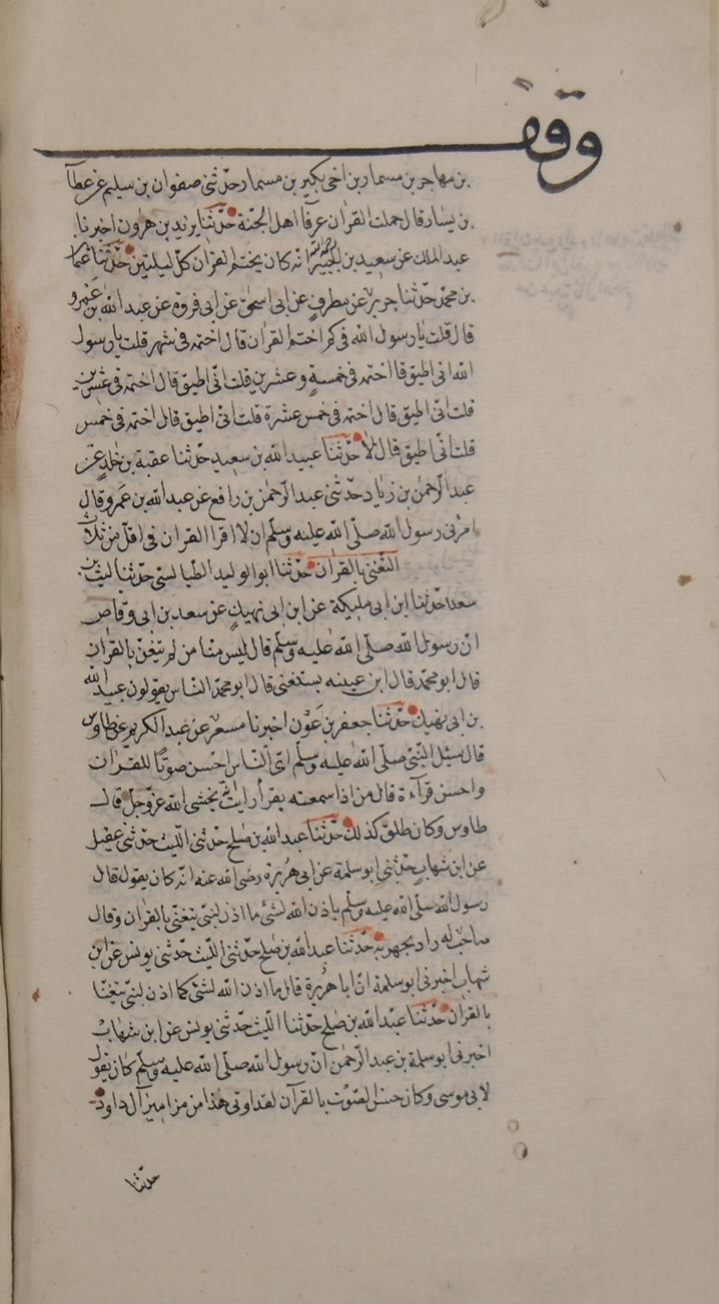 وقف
بن مهاجر بن مسمار بن اخي بكير بن مسمار حدثني صفوان بن سليم عن عطآ
بن يسار قال حملت القرآن عرفا اهل الجنة حدثنا يزيد بن هرون اخبرنا
عبد الملك عن سعيد بن الجبير انه كان يختم القرآن كل ليلتين حدثنا عثما
بن محمد حدثنا جرير عن مطرف عن ابي اسحق عن ابي فروة عن عبد الله بن عمرو
قال قلت يا رسول الله في كم اختم القرآن قال اختمه في شهر قلت يا رسول
الله اني اطيق قا اختمه في خمسة وعشرين قلت اني اطيق قال اختمه في عشرين
قلت اني اطيق قال اختمه في خمس عشرة قلت اني اطيق قال اختمه في خمس
قلت اني اطيق قال لا حدثنا عبيد الله بن سعيد حدثنا عقبة بن خلد عن
عبد الرحمن بن زياد حدثني عبد الرحمن بن رافع عن عبد الله بن عمرو قال
امرني رسول الله صلى الله عليه وسلم ان لا اقرا القران في اقل من ثلاث
التغني بالقرآن حدثنا ابو الوليد الطيالسي حدثنا ليث بن
سعد حدثنا ابن ابي مليكة عن ابن ابي نهيك عن سعد بن ابي وقاص
ان رسول الله صلى الله عليه وسلم قال ليس منا من لم يتغن بالقرآن
قال ابو محمد قال ابن عيينه يستغني قال ابو محمد الناس يقولون عبيد الله
بن ابي نهيك حدثنا جعفر بن عون اخبرنا مسعر عن عبد الكريم عن طاوس
قال سئل النبي صلى الله عليه وسلم اي الناس احسن صوتا للقرآن
واحسن قرآءة قال من اذا سمعته يقرأ رايت انه يخشى الله عز وجل قال
طاوس وكان طلق كذلك حدثنا عبد الله بن صلح حدثني الليث حدثني عقيل
عن ابن شهاب حدثني ابو سلمة عن ابي هريرة رضي الله عنه انه كان يقول قال
رسول الله صلى الله عليه وسلم ياذن الله لشئ ما اذن لنبي يتغنى بالقرآن وقال
صاحب له زاد يجهر به حدثنا عبد الله بن صلح حدثني الليث حدثني يونس عن ابن
شهاب اخبرني ابو سلمة ان ابا هريرة قال ما اذن الله لشئ كما اذن لنبي يتغنا
بالقرآن حدثنا عبد الله بن صلح حدثنا الليث حدثني يونس عن ابن شهاب
اخبرني ابو سلمة بن عبد الرحمن ان رسول الله صلى الله عليه وسلم كان يقول
لابي موسى وكان حسن الصوت بالقرآن لقد اوتي هذا من مزامير آل داود
حدثنا